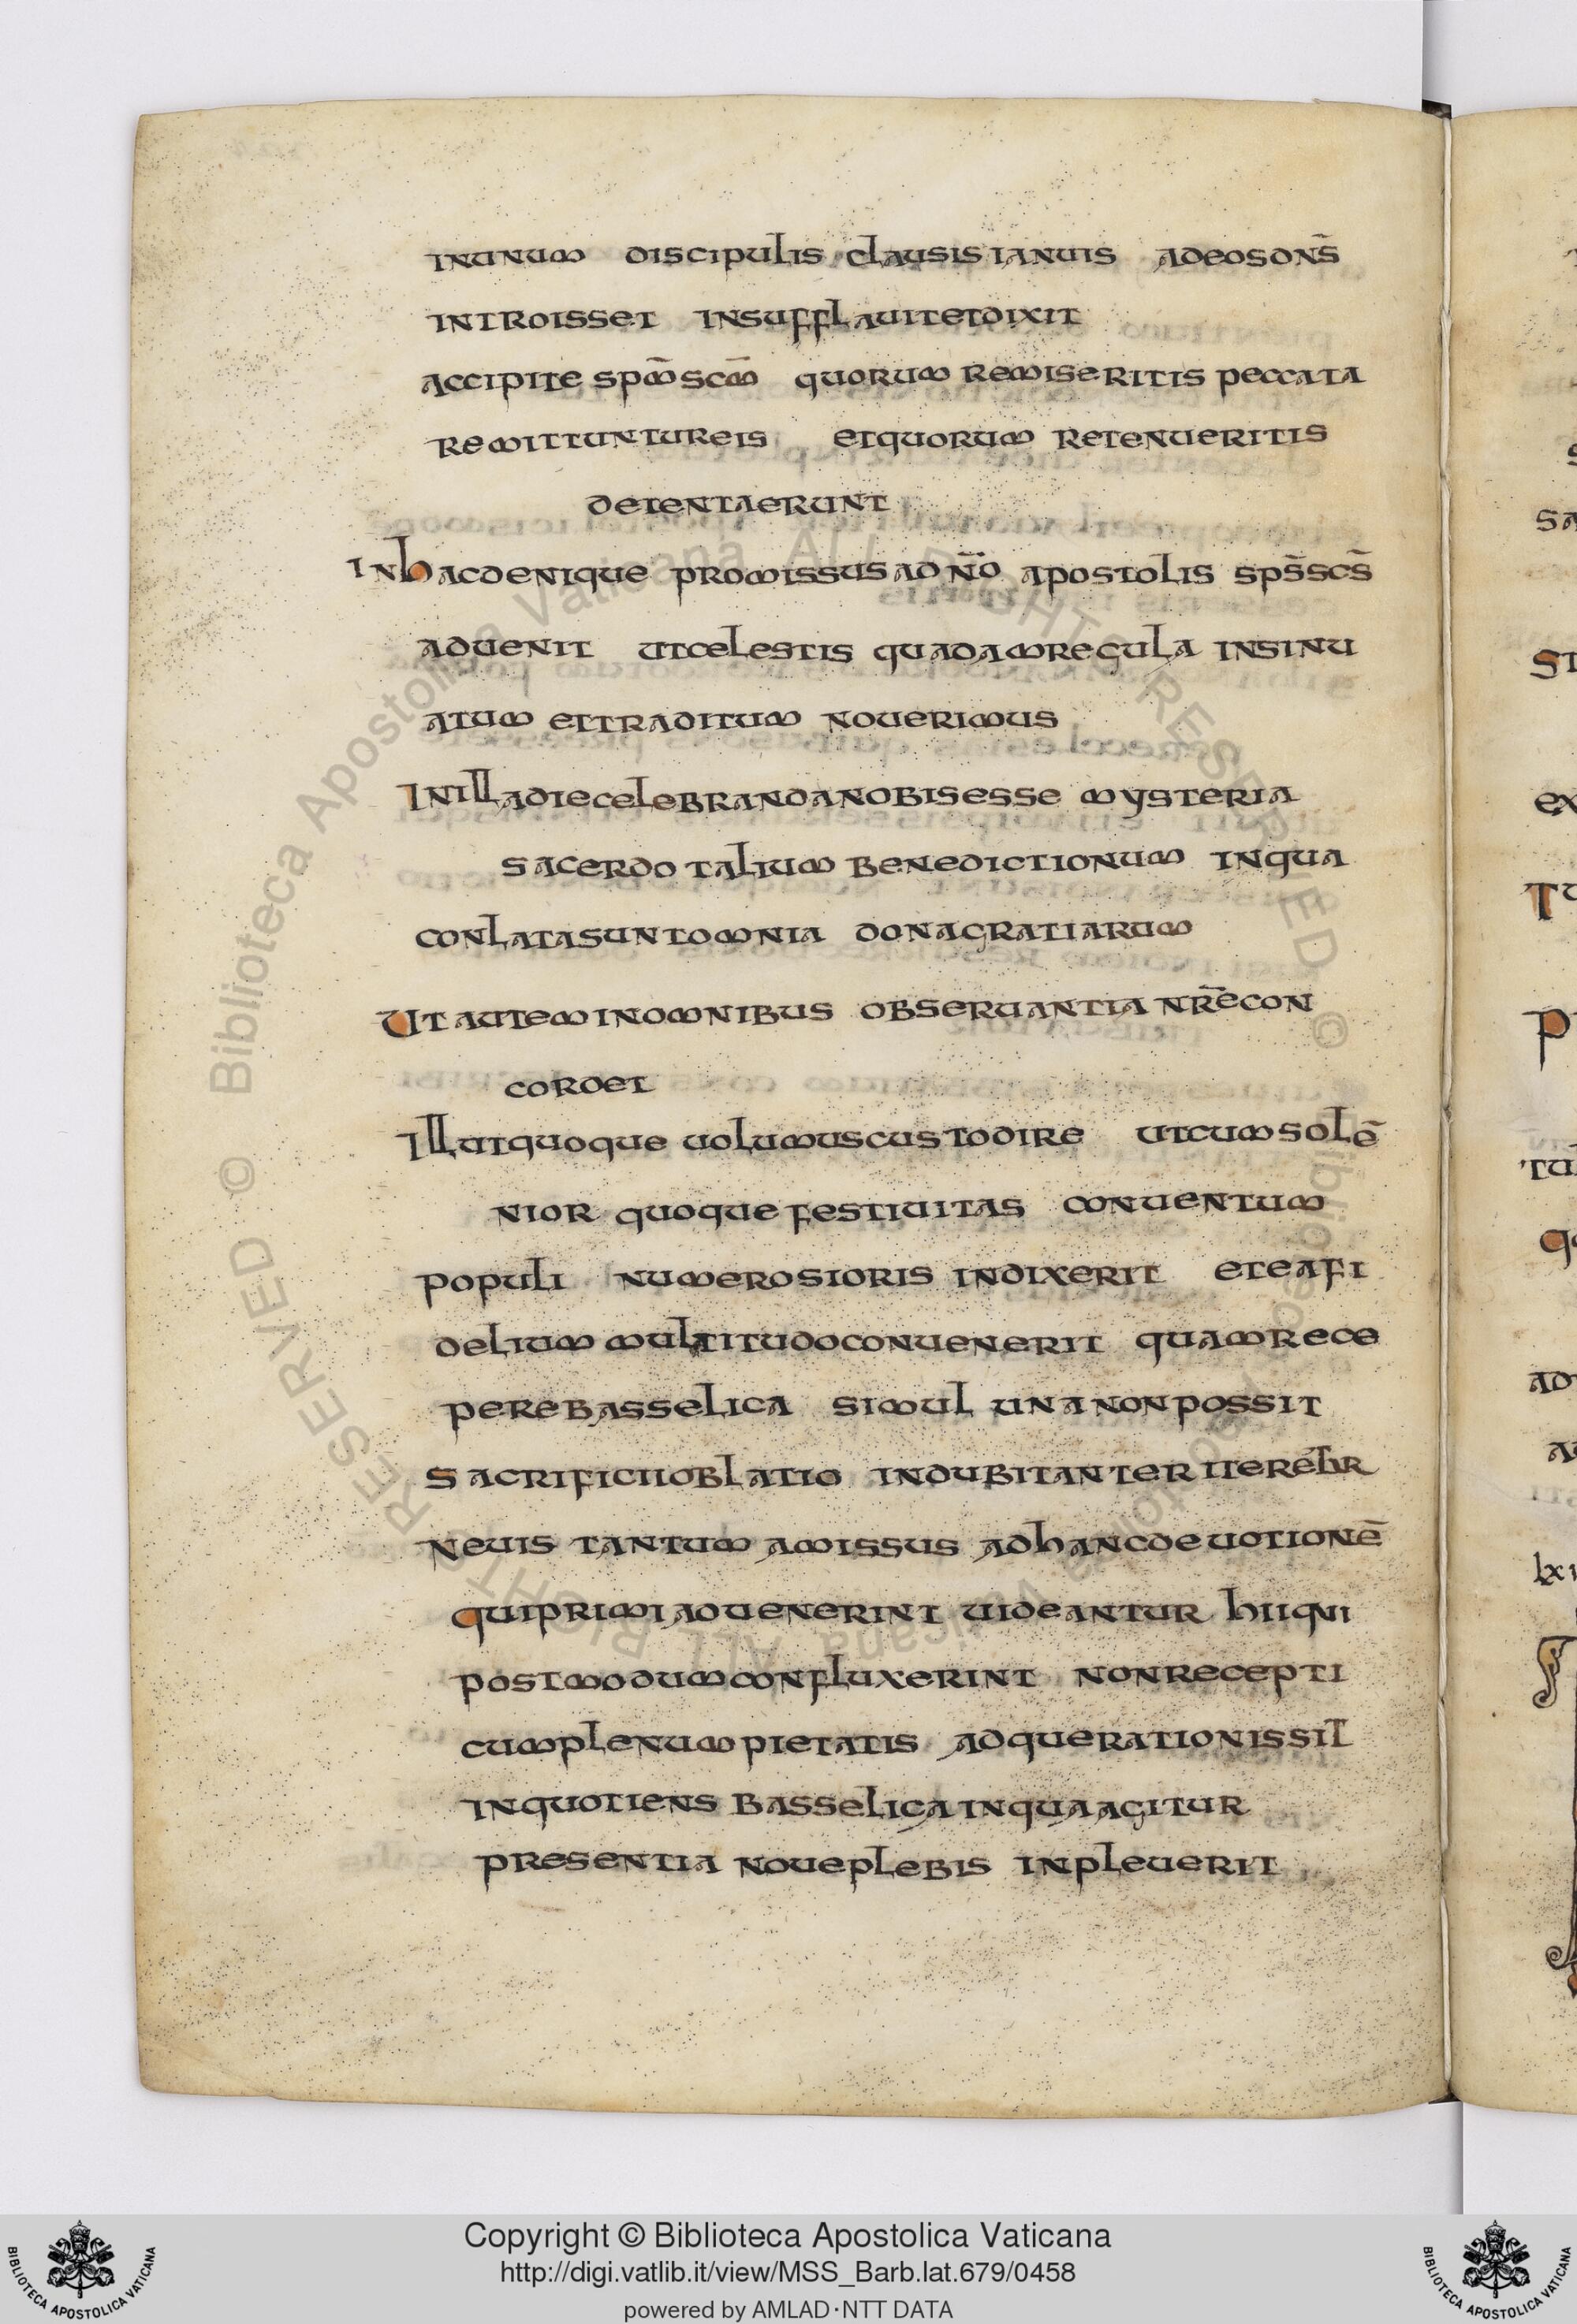 inunum discipulis clausis ianuis adeosdn̄s
introisset insufflauitetdixit
accipite spm̄ scm̄ quorum remiseritis peccata
remittuntureis etquorum retenueritis
detentaerunt
inhacdenique promissus ad n̄o apostolis sps̄ scs̄
aduenit utcelestis quadamregula insinu
atum ettraditum nouerimus
inilladiecelebrandanobisesse mysteria
sacerdotalium benedictionum inqua
conlatasuntomnia donagratiarum
ut autem inomnibus obseruantia nr̄e con
cordet
illutquoque uolumuscustodire utcumsolē
nior quoque festiuitas conuentum
populi numerosioris indixerit eteafi
delium multitudoconuenerit quamrece
perebasselica simul una nonpossit
sacrificiioblatio indubitanter itereħr
neuis tantum amissus adhancdeuotionē
quiprimiaduenerint uideantur hiiqui
postmodumconfluxerint nonrecepti
cumplenumpietatis adquerationissit
inquotiens basselicainquaagitur
presentia noueplebis inpleuerit
Copyright © Biblioteca Apostolica Vaticana
http://digi.vatlib.it/view/MSS_Barb.lat.679/0458
powered by AMLAD·NTT DATA
BIBLIOTECA APOSTOLICA VATICANA
BIBLIOTECA APOSTOLICA VATICANA
© Biblioteca Apostolica Vaticana ALL RIGHTS RESERVED
© Biblioteca Apostolica Vaticana ALL RIGHTS RESERVED